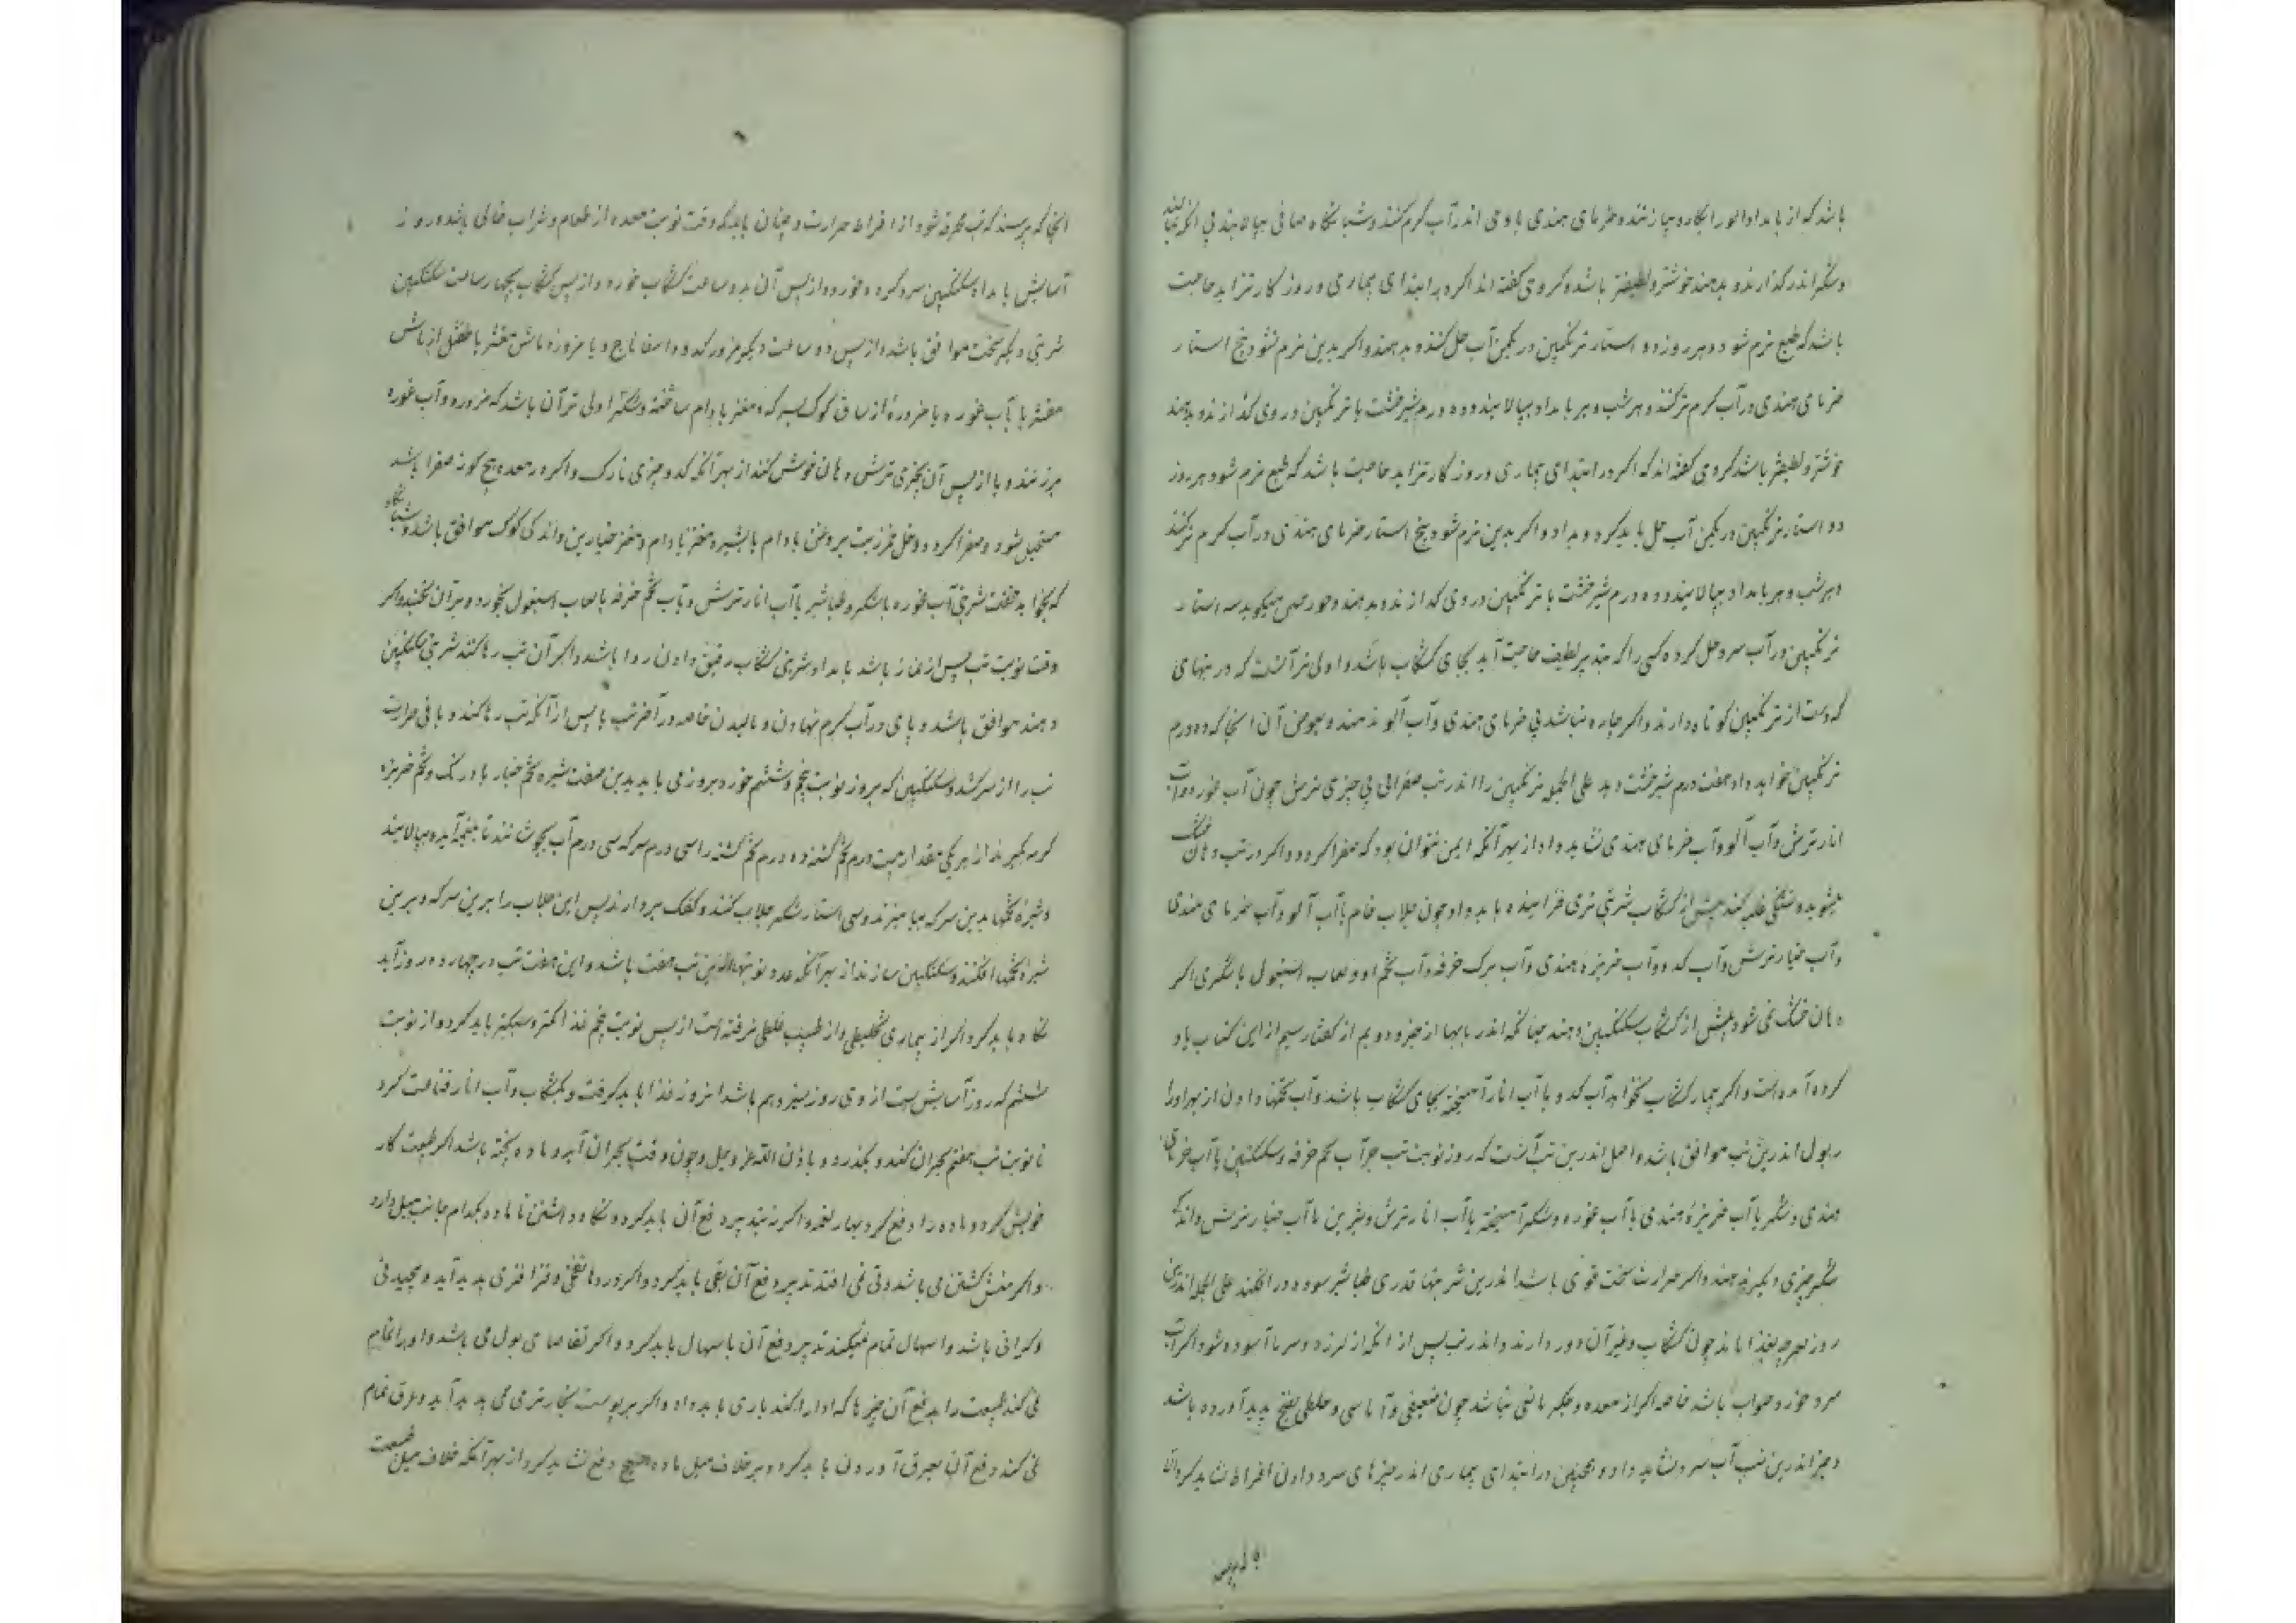 باشد که از بامداد آلو را بکار و بپازنند و خرمای هندی با وی اندر آب گرم کنند و شبانگاه صافی بپالایند بی آنکه بمالند
و شکر اندر گذارند و بدهند خوشتر و لطیفتر باشد و گروهی گفته اند اگر در ابتدای بیماری و روزگار تزاید حاجت
باشد که طبع نرم شود هر روز دو استار ترنگبین در یکمن آب حل کنند و بدهند و اگر بدین نرم نشود پنج استار
خرمای هندی در آب گرم تر کنند هر شب و هر بامداد بپالایند و ده درم شیرخشت یا ترنگبین در وی گذارند و بدهند
خوشتر و لطیفتر باشد گروهی گفته اند که اگر در ابتدای بیماری و روزگار تزاید حاجت باشد که طبع نرم شود هر روز
دو استار ترنگبین در یکمن آب حل باید کرد و بداد و اگر بدین نرم نشود پنج استار خرمای هندی در آب گرم تر کنند
هر شب و هر بامداد بپالایند و ده درم شیرخشت یا ترنگبین در وی گدازند و بدهند و میگوید سه استار
ترنگبین در آب سرد حل کرده کسی را که بتدبیر لطیف حاجت آید بجای کشکاب باشد و اولی تر آنست که در تبهای
که دست از ترنگبین کوتاه دارند و اگر چاره نباشد بی خرمای هندی و آب آلو ندهند و بعوض آن آنجا که ده درم
ترنگبین خواهد داد هفت درم شیرخشت دهد علی الجمله ترنگبین را اندر تب صفرائی بی چیزی ترش چون آب غوره و آب
انار ترش و آب آلو و آب خرمای هندی نشاید داد از بهر آنکه ایمن نتوان بود که صفرا گردد و اگر در تب دهان خشک
میشود و تشنگی غلبه کند پیش از کشکاب شربتی تری فزاینده باید داد چون جلاب خام با آب آلو و آب خرمای هندی
و آب خیار ترش و آب کدو و آب خربزه هندی و آب برگ خرفه و آب تخم او و لعاب اسبغول با شکری اگر
دهان خشک نمی شود پیش از کشکاب سکنگبین دهند چنانکه اندر بابها از جزو دویم از گفتار سیم از این کتاب یاد
کرده آمده است و اگر بیمار کشکاب نخواهد آب کدو با آب انار آمیخته بجای کشکاب باشد و آب تخمها دادن از بهر ادرار
بول اندرین تب موافق باشد و اصل اندرین تب آنست که روز نوبت تب جز آب تخم خرفه و سکنگبین یا آب خرمای
هندی و شکر یا آب خربزه هندی یا آب غوره و شکر آمیخته یا آب انار ترش و شیرین یا آب خیار ترش و اندکی
شکر چیزی دیگر ندهند و اگر حرارت سخت قوی باشد اندرین شربتها قدری طباشیر سوده در افکنند علی الجمله اندرین
روز هرچه بغذا ماند چون کشکاب و غیر آن دور دارند و اندر تب پس از آنکه از لرزه و سرما آسوده شود اگر آب
سرد خورد صواب باشد خاصه اگر از معده و جگر مانعی نباشد چون ضعیفی و آماسی و خلطی نضج پدید آورده باشد
و جز اندرین تب آب سرد نشاید داد و همچنین در ابتدای بیماری اندر چیزهای سرد دادن افراط نشاید کرد الا
آنجا که بترسند که تب محرقه شود از افراط حرارت و چنان باید که وقت نوبت معده از طعام و شراب خالی باشد و روز
آسایش بامداد سکنگبین سرد کرده خورد و از پس آن بدو ساعت کشکاب خورد و از پس کشکاب بچهار ساعت سکنگبین
شربتی دیگر سخت موافق باشد و از پس دو ساعت دیگر مزوره کدو و اسفاناج و یا مزوره ماش مقشر یا طفشل از ماش
مقشر یا آب غوره یا مزوره از ساق کوک بسرکه و مغز بادام ساخته و شکر اولی تر آن باشد که مزوره و آب غوره
برزنند و یا از پس آن بچیزی ترش دهان خوش کنند از بهر آنکه کدو چیزی نازک و اگر در معده هیچ گونه صفرا باشد
مستحیل شود و صفرا گردد و خل زیت بروغن بادام یا بشیره مغز بادام و مغز خیارین و اندکی کوک موافق باشد و شبانگاه
که بخواهد خفت شربتی آب غوره با شکر و طباشیر یا آب انار ترش و یا آب تخم خرفه با لعاب اسبغول بخورد و بر آن بخسبد و اگر
وقت نوبت تب پس از نماز باشد بامداد شربتی کشکاب رقیق دادن روا باشد و اگر آن تب رها کند شربتی سکنگبین
دهند موافق باشد و پای در آب گرم نهادن و مالیدن خاصه در آخر تب یا پس از آنکه تب رها کند و باقی حرارت
تب را از سر کشد و سکنگبین که بروز نوبت پنجم و ششم خورد بروز می باید بدین صفت شیره تخم خیار بادرنگ و تخم خربزه
گرمه بگیرند از هر یکی مقدار بیست درم تخم کشنه ده درم تخم کشنه را سی درم سرکه سی درم آب بجوشانند تا بنیمه آید و بپالایند
و شیره تخمها بدین سرکه بیامیزند و سی استار شکر جلاب کنند و کفک بردارند پس این جلاب را برین سرکه و برین
شیره تخمها افکنند و سکنگبین سازند از بهر آنکه عدد نوبتهاء این تب هفت باشد و این هفت تب در چهارده روز آید
نگاه باید کرد اگر از بیماری تخلیطی و از طبیب غلطی نرفته است از پس نوبت پنجم غذا کمتر و سبکتر باید کرد و از نوبت
ششم که روز آسایش ست از وی روز سیزدهم باشد امروز غذا باید گرفت و بکشکاب و آب انار قناعت کرد
تا نوبت تب هفتم بحران کند و بگذرد و باذن الله عز وجل و چون وقت بحران آید و ماده پخته باشد اگر طبیعت کار
خویش کرد و ماده را دفع کرد بها و نعمه و اگر نه تدبیر دفع آن باید کرد و نگاه داشتن تا ماده بکدام جانب میل دارد
و اگر منش گشتن می باشد و قی نمی افتد تدبیر دفع آن بقی باید کرد و اگر در روده ها نفخی و قراقری پدید آید و پیچیدنی
و گرانی باشد و اسهال تمام نمیکند تدبیر دفع آن باسهال باید کرد و اگر تقاضای بول می باشد و ادرار تمام
نمی کند طبیعت را بدفع آن چیزها که ادرار کند یاری باید داد و اگر بر پوست بخار تری می پدید آید و عرق تمام
نمی کند دفع آن بعرق آوردن باید کرد و بر خلاف میل ماده هیچ دفع نشاید کرد از بهر آنکه خلاف میل طبیعت